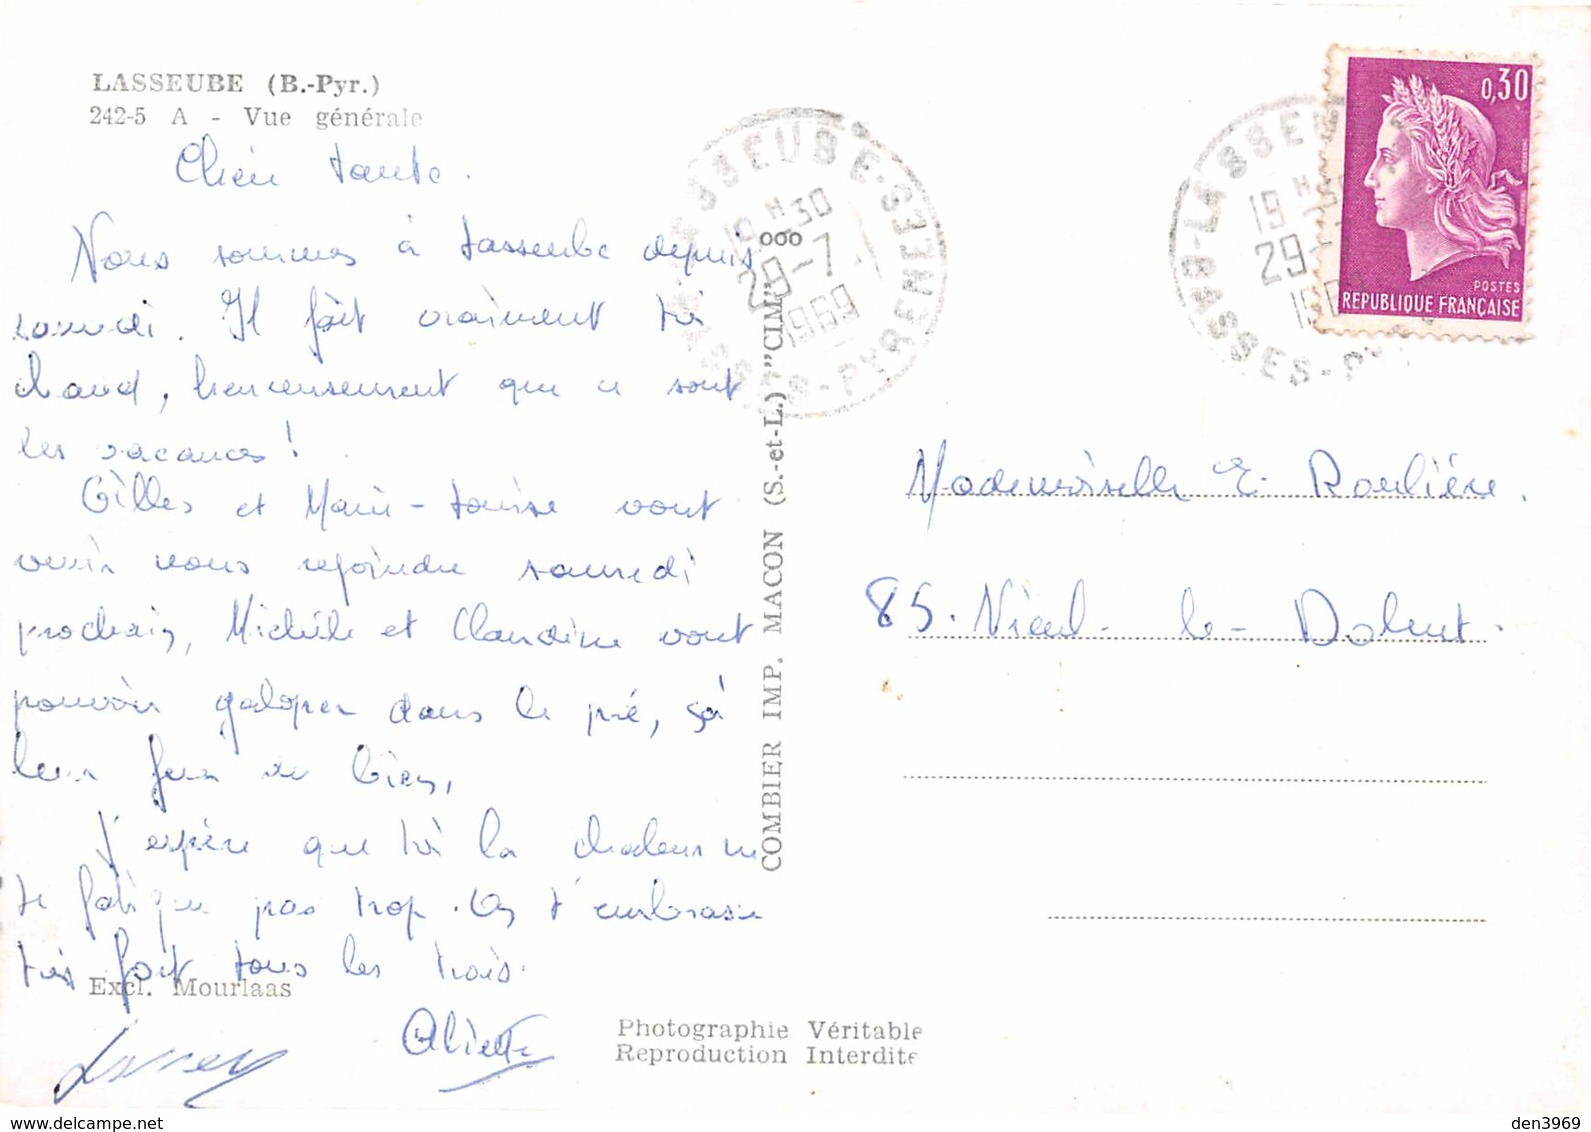 LASSEUBE (B.-Pyr.)
242-5 A - Vue générale
Chère tante.
Nous sommes à Lasseube depuis
samedi. Il fait vraiment très
chaud, heureusement que ce sont
les vacances !
Gilles et Marie-Louise vont
venir nous rejoindre samedi
prochain, Michèle et Claudine vont
pouvoir galoper dans le pré, ça
leur fera du bien,
J'espère que la chaleur ne
te fatigue pas trop. On t'embrasse
très fort tous les trois.
Excl. Mourlaas
Aliette
Photographie Véritable
Reproduction Interdite
COMBIER IMP. MACON (S.-et-L.) "CIM"
LASSEUBE-BASSES-PYRENEES
19H30
29-7
1969
LASSEU
BASSES-P
19H30
29-
196
0,30
POSTES
REPUBLIQUE FRANÇAISE
Mademoiselle E. Roulière.
85. Nieul-le-Dolent.
den3969